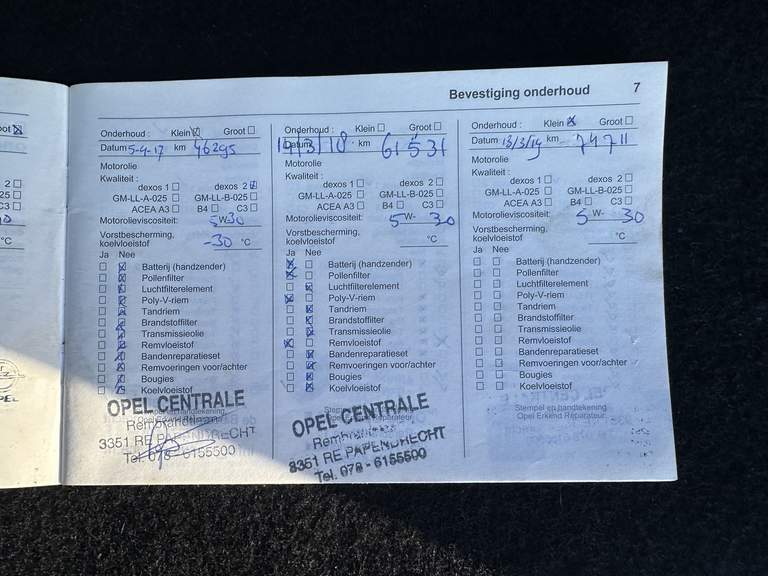 Bevestiging onderhoud 7
Onderhoud: Klein ☒ Groot ☐
Datum 5-4-17 km 46295
Motorolie
Kwaliteit:
dexos 1 ☐ dexos 2 ☒
GM-LL-A-025 ☐ GM-LL-B-025 ☐
ACEA A3 ☐ B4 ☐ C3 ☐
Motorolieviscositeit: 5W30
Vorstbescherming,
koelvloeistof -30 °C
Ja Nee
☐ ☒ Batterij (handzender)
☐ ☒ Pollenfilter
☐ ☒ Luchtfilterelement
☐ ☒ Poly-V-riem
☐ ☒ Tandriem
☐ ☒ Brandstoffilter
☐ ☒ Transmissieolie
☐ ☒ Remvloeistof
☐ ☒ Bandenreparatieset
☐ ☒ Remvoeringen voor/achter
☐ ☒ Bougies
☐ ☒ Koelvloeistof
OPEL CENTRALE
3351 RE PAPENDRECHT
Tel. 078-6155500
Onderhoud: Klein ☐ Groot ☐
Datum 14/3/18 km 61531
Motorolie
Kwaliteit:
dexos 1 ☐ dexos 2 ☐
GM-LL-A-025 ☐ GM-LL-B-025 ☐
ACEA A3 ☐ B4 ☐ C3 ☐
Motorolieviscositeit: 5 W- 30
Vorstbescherming,
koelvloeistof °C
Ja Nee
☒ ☐ Batterij (handzender)
☒ ☐ Pollenfilter
☐ ☒ Luchtfilterelement
☒ ☐ Poly-V-riem
☐ ☒ Tandriem
☐ ☒ Brandstoffilter
☐ ☒ Transmissieolie
☒ ☐ Remvloeistof
☐ ☒ Bandenreparatieset
☐ ☒ Remvoeringen voor/achter
☐ ☒ Bougies
☐ ☒ Koelvloeistof
OPEL CENTRALE
3351 RE PAPENDRECHT
Tel. 078 - 6155500
Onderhoud: Klein ☒ Groot ☐
Datum 13/3/19 km 74711
Motorolie
Kwaliteit:
dexos 1 ☐ dexos 2 ☐
GM-LL-A-025 ☐ GM-LL-B-025 ☐
ACEA A3 ☐ B4 ☐ C3 ☐
Motorolieviscositeit: 5 W- 30
Vorstbescherming,
koelvloeistof °C
Ja Nee
☐ ☐ Batterij (handzender)
☐ ☐ Pollenfilter
☐ ☐ Luchtfilterelement
☐ ☐ Poly-V-riem
☐ ☐ Tandriem
☐ ☐ Brandstoffilter
☐ ☐ Transmissieolie
☐ ☐ Remvloeistof
☐ ☐ Bandenreparatieset
☐ ☐ Remvoeringen voor/achter
☐ ☐ Bougies
☐ ☐ Koelvloeistof
Stempel en handtekening
Opel Erkend Reparateur